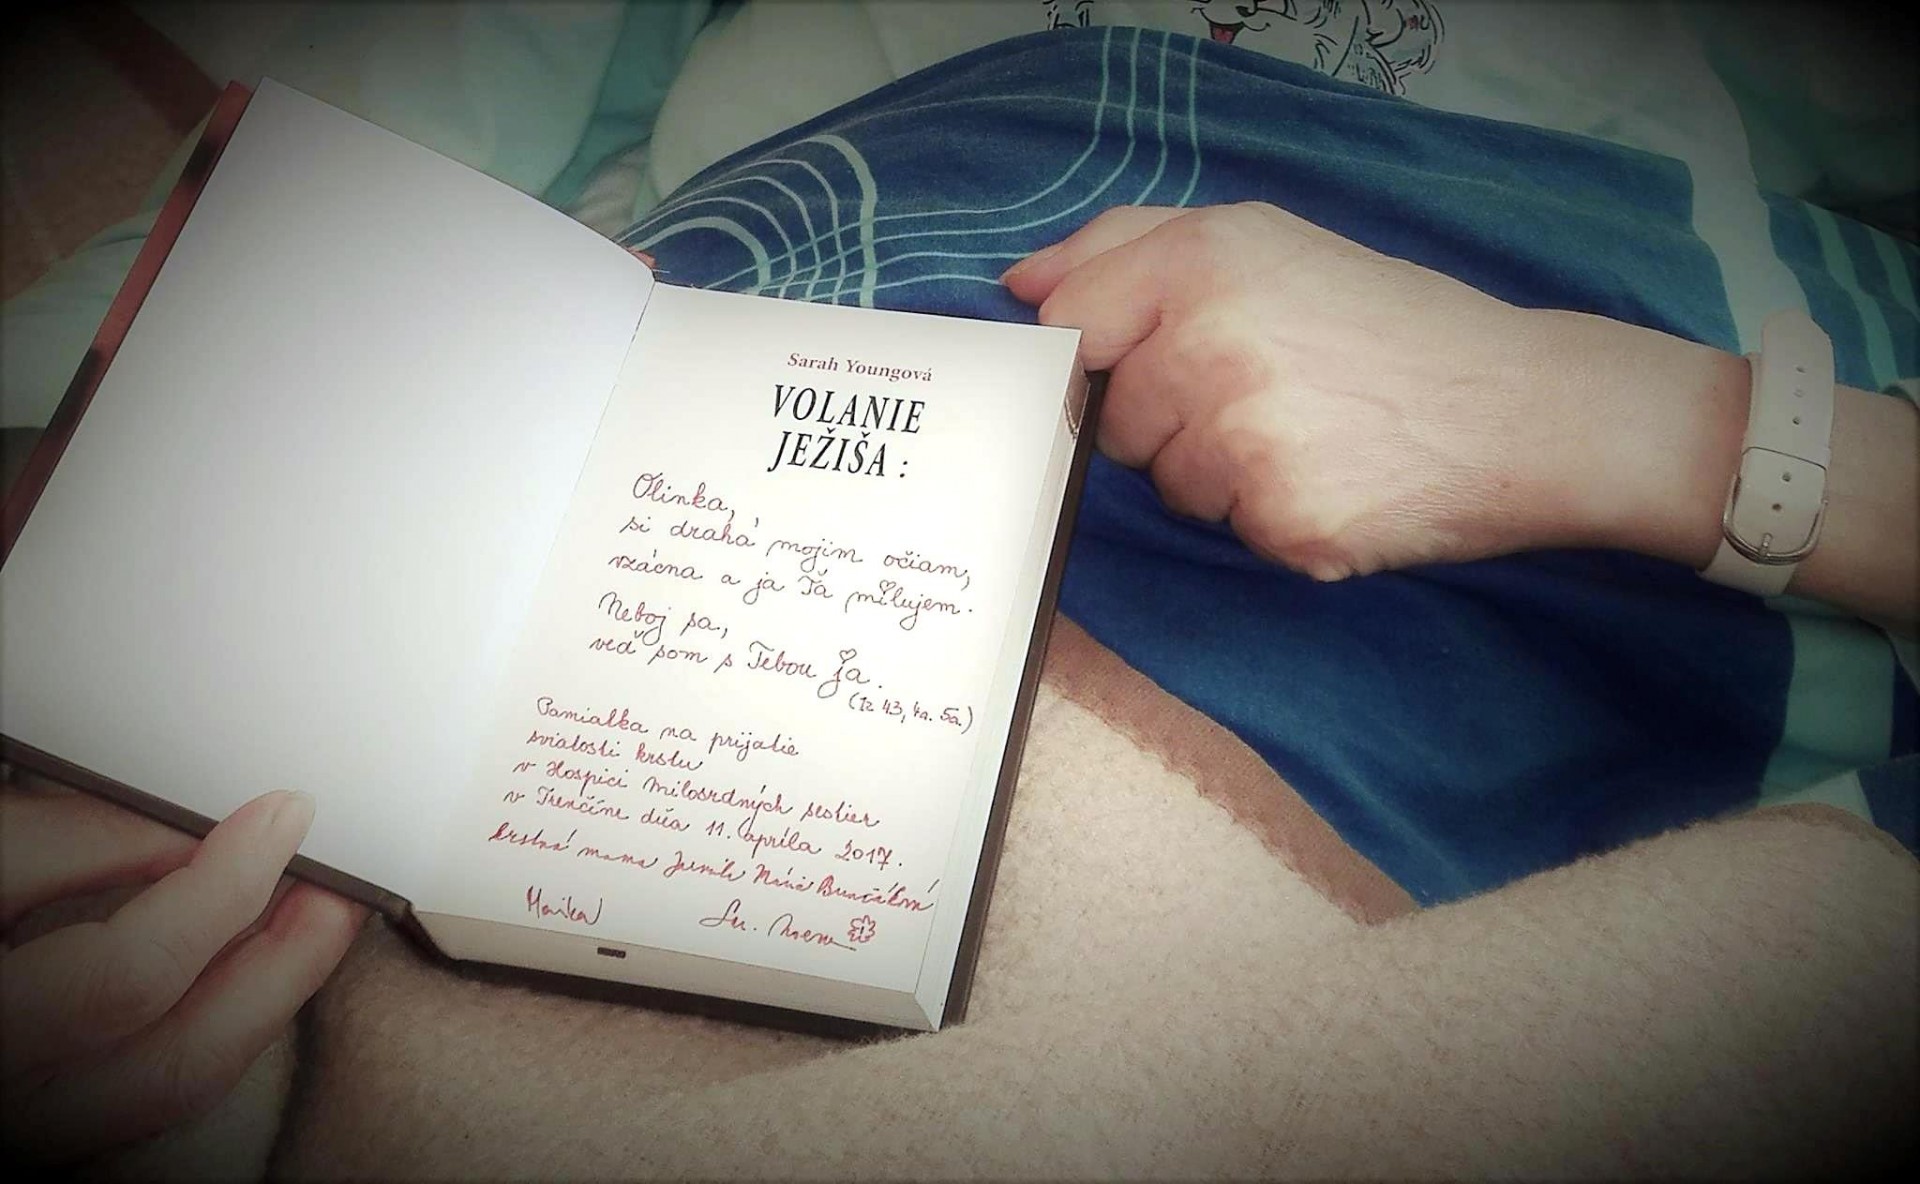 Sarah Youngová
VOLANIE
JEŽIŠA :
Olinka,
si drahá mojim očiam,
vzácna a ja Ťa milujem.
Neboj sa,
veď som s Tebou ja.
(Iz 43, 4a. 5a.)
Pamiatka na prijatie
sviatosti krstu
v Hospici Milosrdných sestier
v Trenčíne dňa 11. apríla 2017.
krstná mama